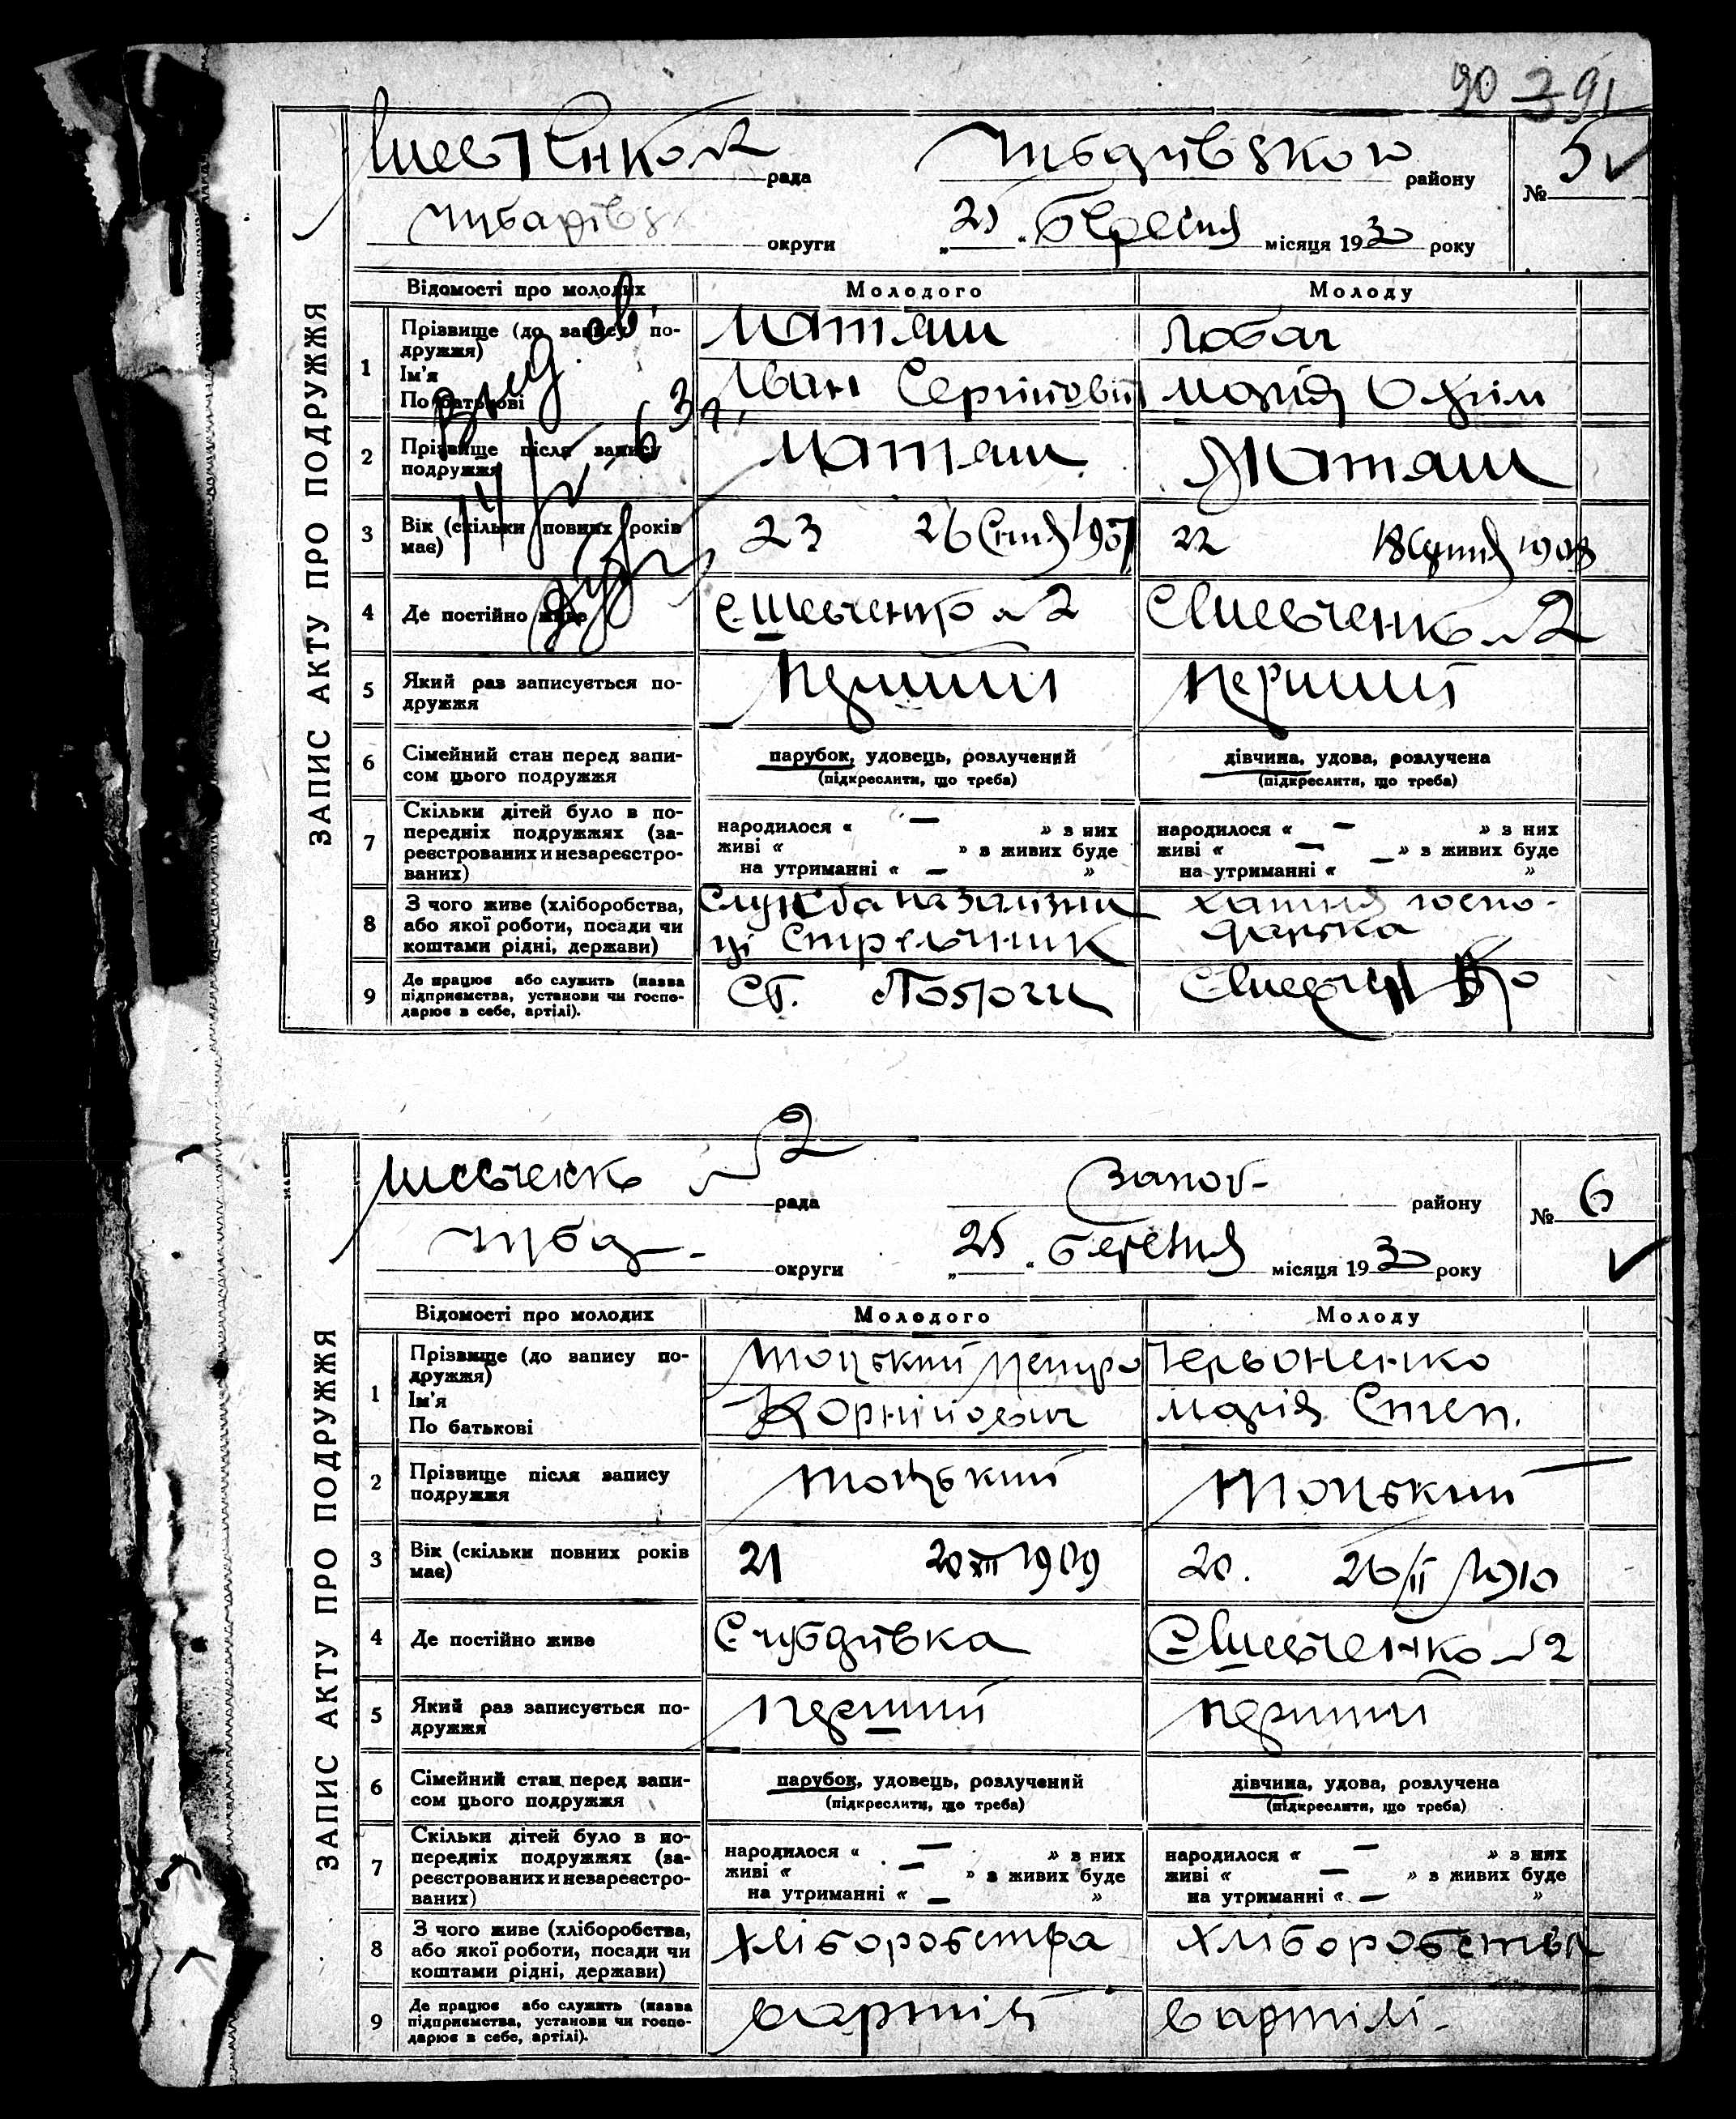 90 391
рада району № 5
округи „25“ березня місяця 1930 року
ЗАПИС АКТУ ПРО ПОДРУЖЖЯ
Відомості про молодих Молодого Молоду
1 Прізвище (до запису по-
дружжя)
Ім'я
По батькові
Маташ Лобач
Іван Сергійович Марія Юхим
2 Прізвище після запису
подружжя
Маташ Маташ
3 Вік (скільки повних років
має)
23 26 1907 22 18 1908
4 Де постійно живе С Шевченко №2 С Шевченко №2
5 Який раз записується по-
дружжя
Перший Перший
6 Сімейний стан перед запи-
сом цього подружжя
парубок, удовець, розлучений
(підкреслити, що треба)
дівчина, удова, розлучена
(підкреслити, що треба)
7 Скільки дітей було в по-
передніх подружжях (за-
реєстрованих и незареєстро-
ваних)
народилося « — » з них
живі « » в живих буде
на утриманні « — »
народилося « — » з них
живі « — » в живих буде
на утриманні « — »
8 З чого живе (хліборобства,
або якої роботи, посади чи
коштами рідні, держави)
Служба на залізни
ці Стрелочник
хатня госпо-
дарка
9 Де працює або служить (назва
підприємства, установи чи госпо-
дарює в себе, артілі).
Ст.
Шевченко №2 рада району № 6
округи „25“ березня місяця 1930 року
ЗАПИС АКТУ ПРО ПОДРУЖЖЯ
Відомості про молодих Молодого Молоду
1 Прізвище (до запису по-
дружжя)
Ім'я
По батькові
Тоцький Петро Червоненко
Корнійович Марія Степ.
2 Прізвище після запису
подружжя
Тоцький Тоцький
3 Вік (скільки повних років
має)
21 20 XII 1909 20. 26/II 1910
4 Де постійно живе С Шевченко №2
5 Який раз записується по-
дружжя
перший перший
6 Сімейний стан перед запи-
сом цього подружжя
парубок, удовець, розлучений
(підкреслити, що треба)
дівчина, удова, розлучена
(підкреслити, що треба)
7 Скільки дітей було в по-
передніх подружжях (за-
реєстрованих и незареєстро-
ваних)
народилося « — » з них
живі « — » в живих буде
на утриманні « — »
народилося « — » з них
живі « — » в живих буде
на утриманні « — »
8 З чого живе (хліборобства,
або якої роботи, посади чи
коштами рідні, держави)
Хліборобства Хліборобства
9 Де працює або служить (назва
підприємства, установи чи госпо-
дарює в себе, артілі).
в артілі в артілі